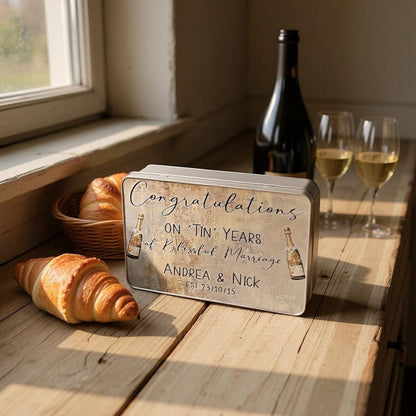 Congratulations
ON 'TIN' YEARS
of Blissful Marriage
ANDREA & NICK
EST 23/10/15